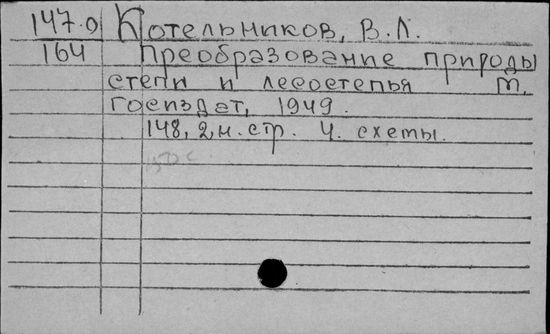 147.9 Котельников, В.Л.
164 Преобразование природы
степи и лесостепья М.
госиздат, 1949.
148, 2 н. стр. Ч. схемы.